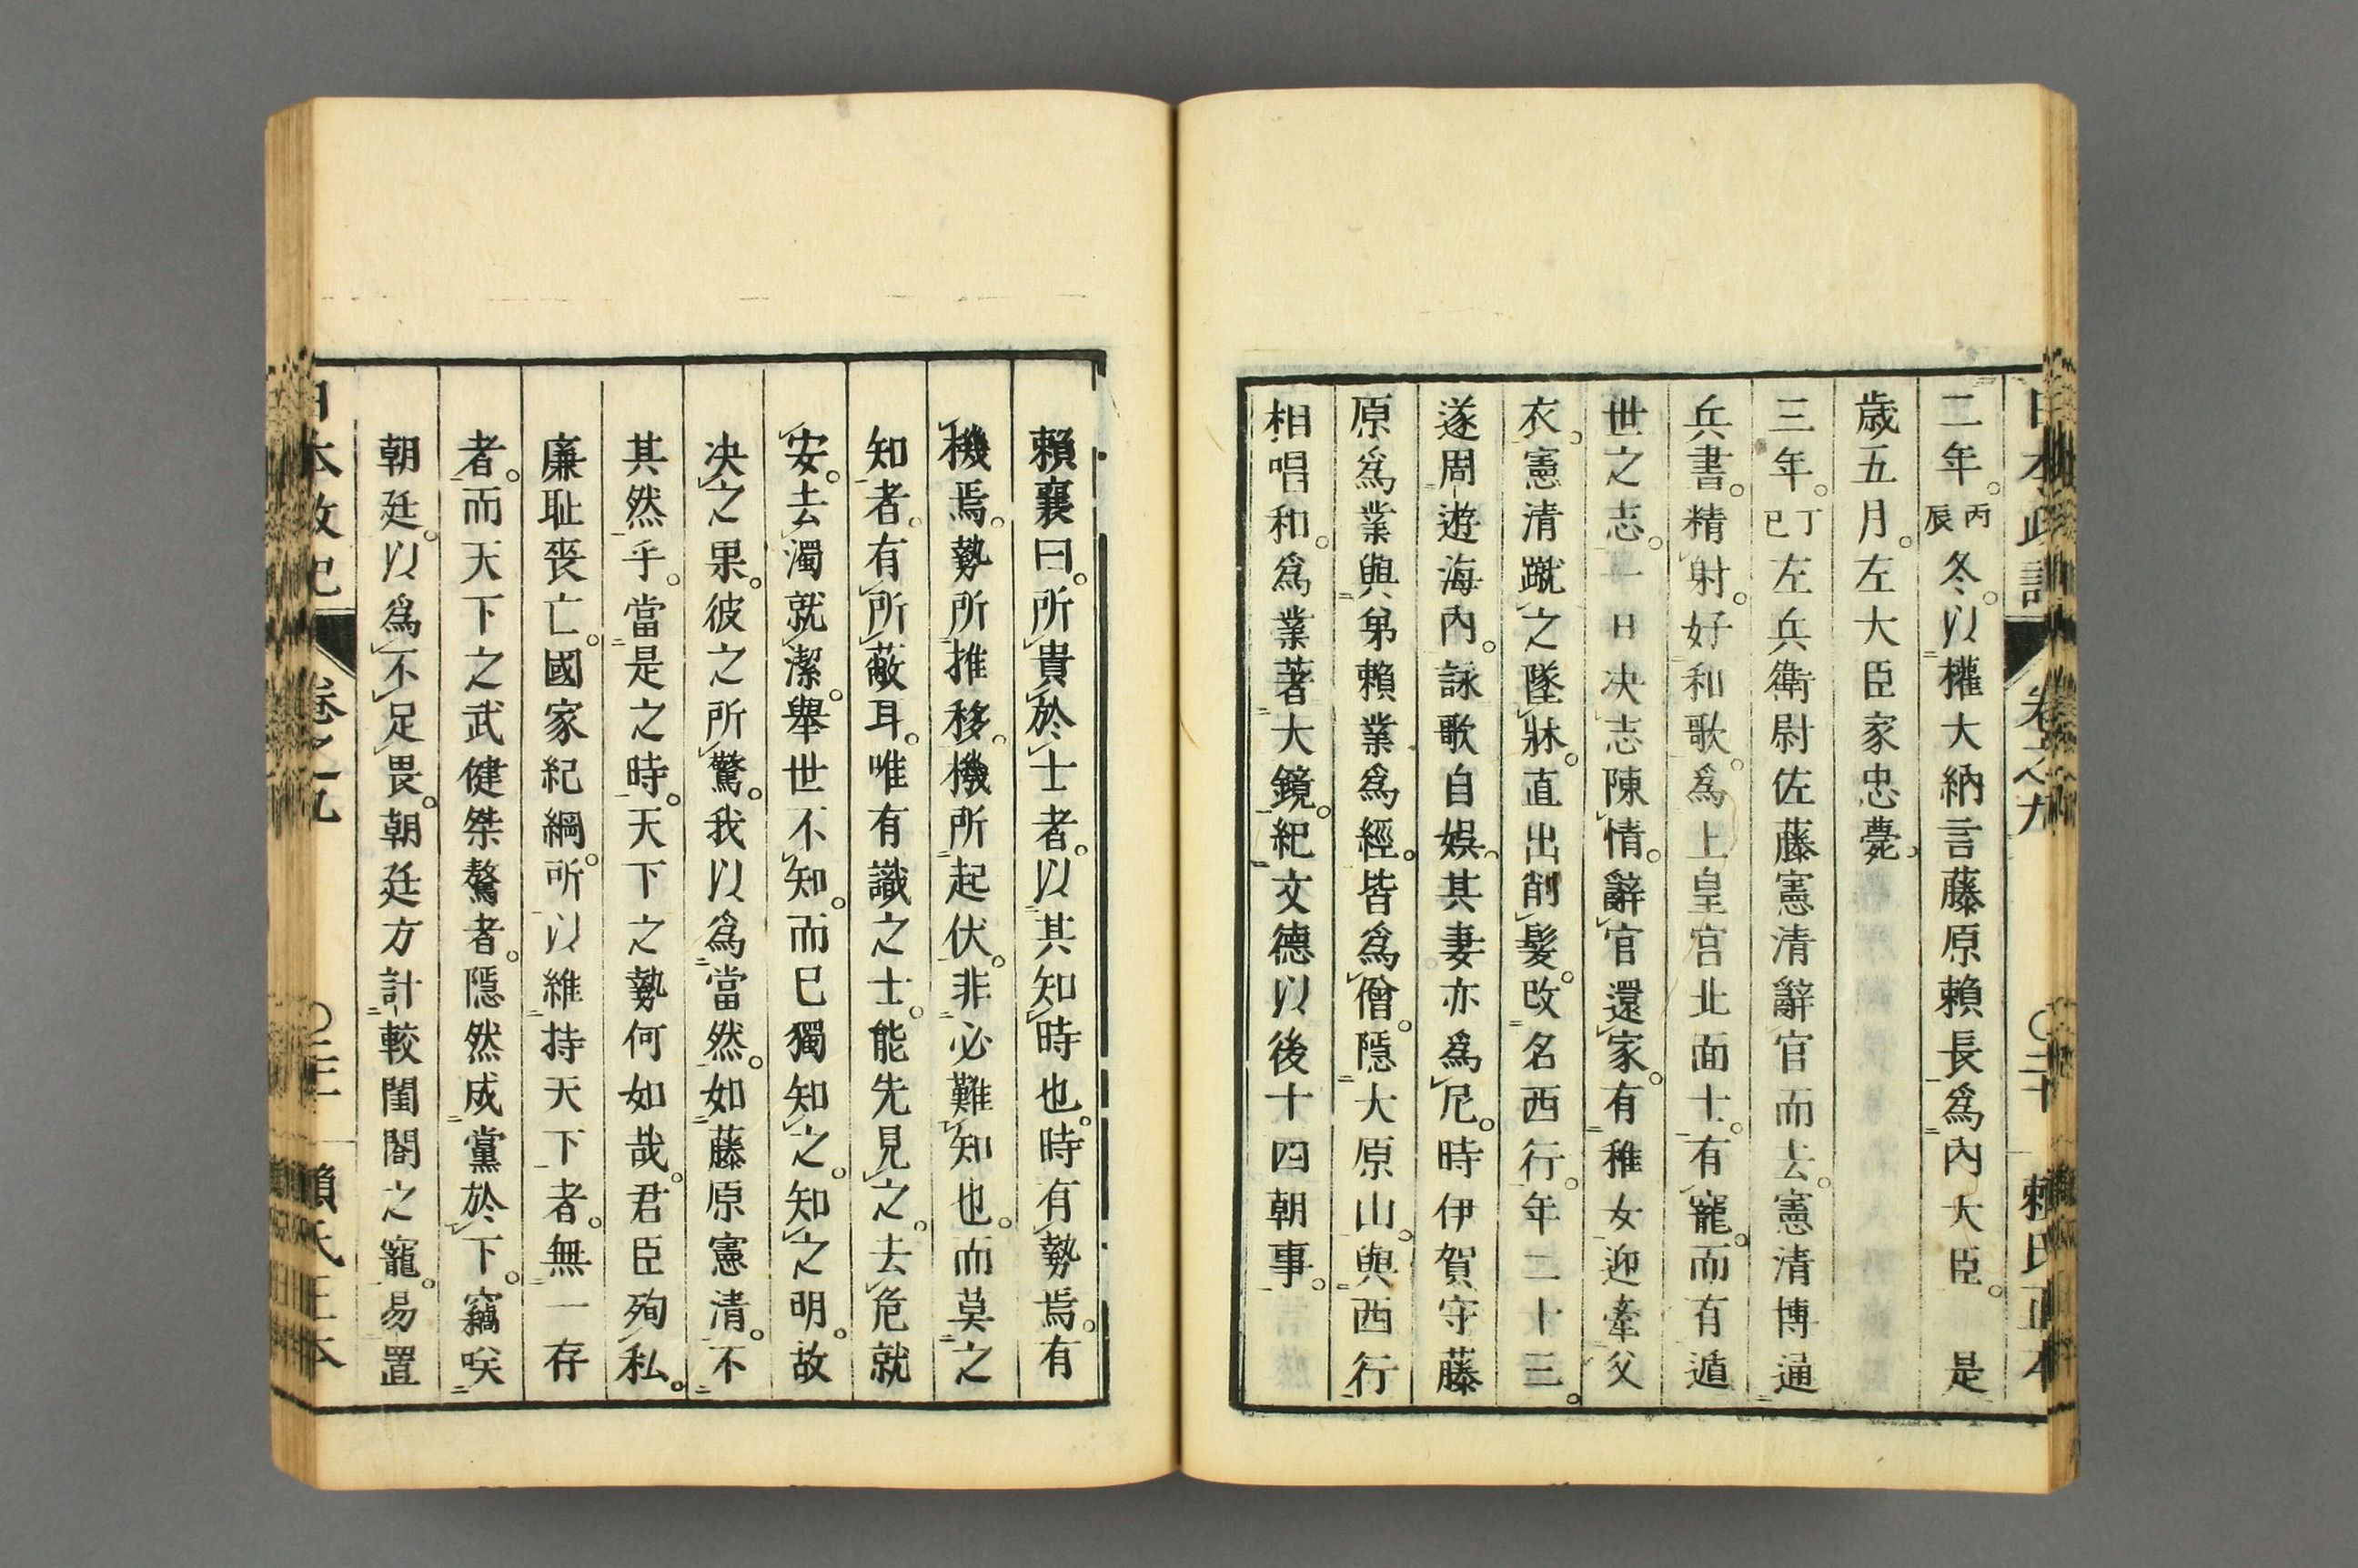 日本政記 卷之九 〇三十 賴氏正本
二年。丙辰冬。以權大納言藤原賴長爲內大臣。 是
歲五月。左大臣家忠薨。
三年。丁巳左兵衞尉佐藤憲清辭官而去。憲清博通
兵書。精射。好和歌。爲上皇宮北面士。有寵。而有遁
世之志。一日決志陳情。辭官還家。有稚女迎牽父
衣。憲清蹴之墜牀。直出削髮。改名西行。年二十三。
遂周遊海內。詠歌自娛。其妻亦爲尼。時伊賀守藤
原爲業與弟賴業爲經。皆爲僧。隱大原山。與西行
相唱和。爲業著大鏡。紀文德以後十四朝事。
賴襄曰。所貴於士者。以其知時也。時有勢焉。有
機焉。勢所推移。機所起伏。非必難知也。而莫之
知者。有所蔽耳。唯有識之士。能先見之。去危就
安。去濁就潔。舉世不知。而已獨知之。知之明。故
决之果。彼之所驚。我以爲當然。如藤原憲清。不
其然乎。當是之時。天下之勢何如哉。君臣殉私。
廉耻喪亡。國家紀綱。所以維持天下者。無一存
者。而天下之武健桀驁者。隱然成黨於下。竊咲
朝廷。以爲不足畏。朝廷方計較閨閤之寵。易置
日本政記 卷之九 〇三十一 賴氏正本